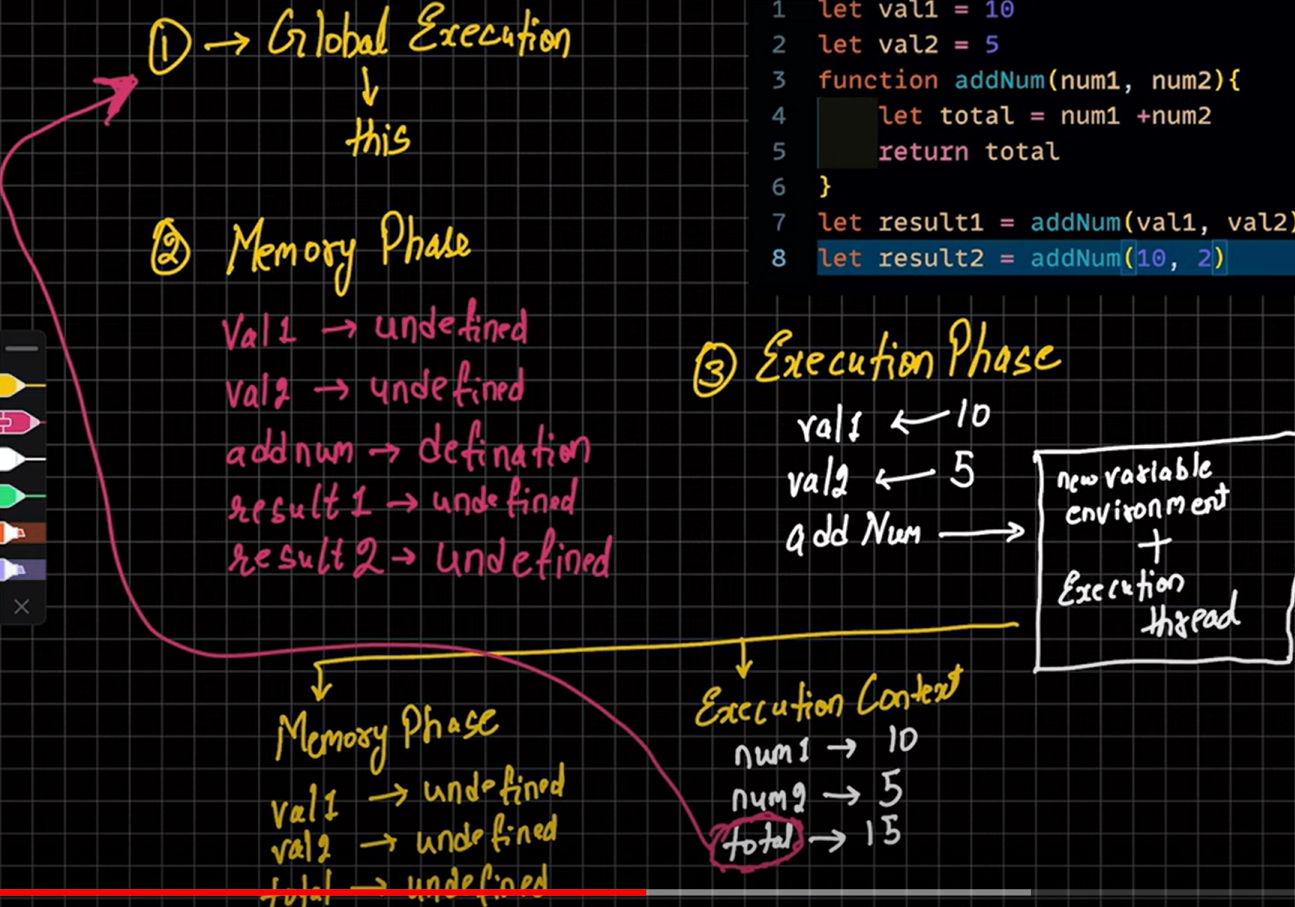 ① → Global Execution
↓
this
② Memory Phase
Val1 → undefined
val2 → undefined
addnum → defination
result1 → undefined
result2 → undefined
1 let val1 = 10
2 let val2 = 5
3 function addNum(num1, num2){
4 let total = num1 +num2
5 return total
6 }
7 let result1 = addNum(val1, val2)
8 let result2 = addNum(10, 2)
③ Execution Phase
val1 ← 10
val2 ← 5
addNum →
new variable
environment
+
Execution
thread
Memory Phase
val1 → undefined
val2 → undefined
total → undefined
Execution Context
num1 → 10
num2 → 5
total → 15